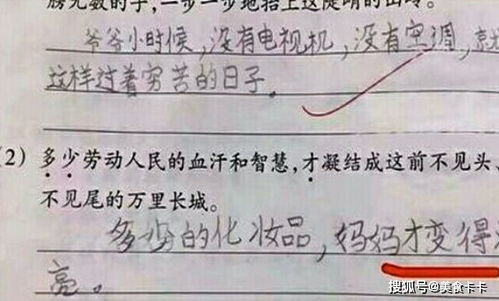 勝无数的子,一步一步地抬上这陡峭的山岭。
爷爷小时候,没有电视机,没有空调,就
这样过着穷苦的日子。
(2) 多少劳动人民的血汗和智慧,才凝结成这前不见头、
不见尾的万里长城。
多少的化妆品,妈妈才变得
亮。
搜狐号@美食卡卡